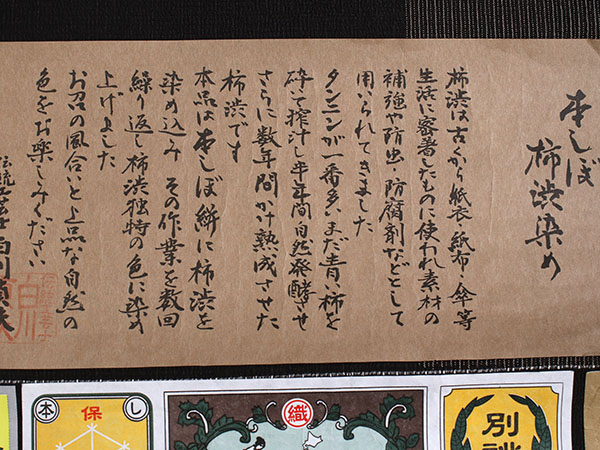 本しぼ
柿渋染め
柿渋は古くから紙衣・紙布・傘等
生活に密着したものに使われ素材の
補強や防虫・防腐剤などとして
用いられてきました
タンニンが一番多いまだ青い柿を
砕いて搾汁し半年間自然発酵させ
さらに数年間かけ熟成させた
柿渋です
本品は本しぼ絣に柿渋を
染め込みその作業を数回
繰り返し柿渋独特の色に染め
上げました
お召の風合いと上品な自然の
色をお楽しみください
伝統工芸士 白川
白川
本
保
し
織
別